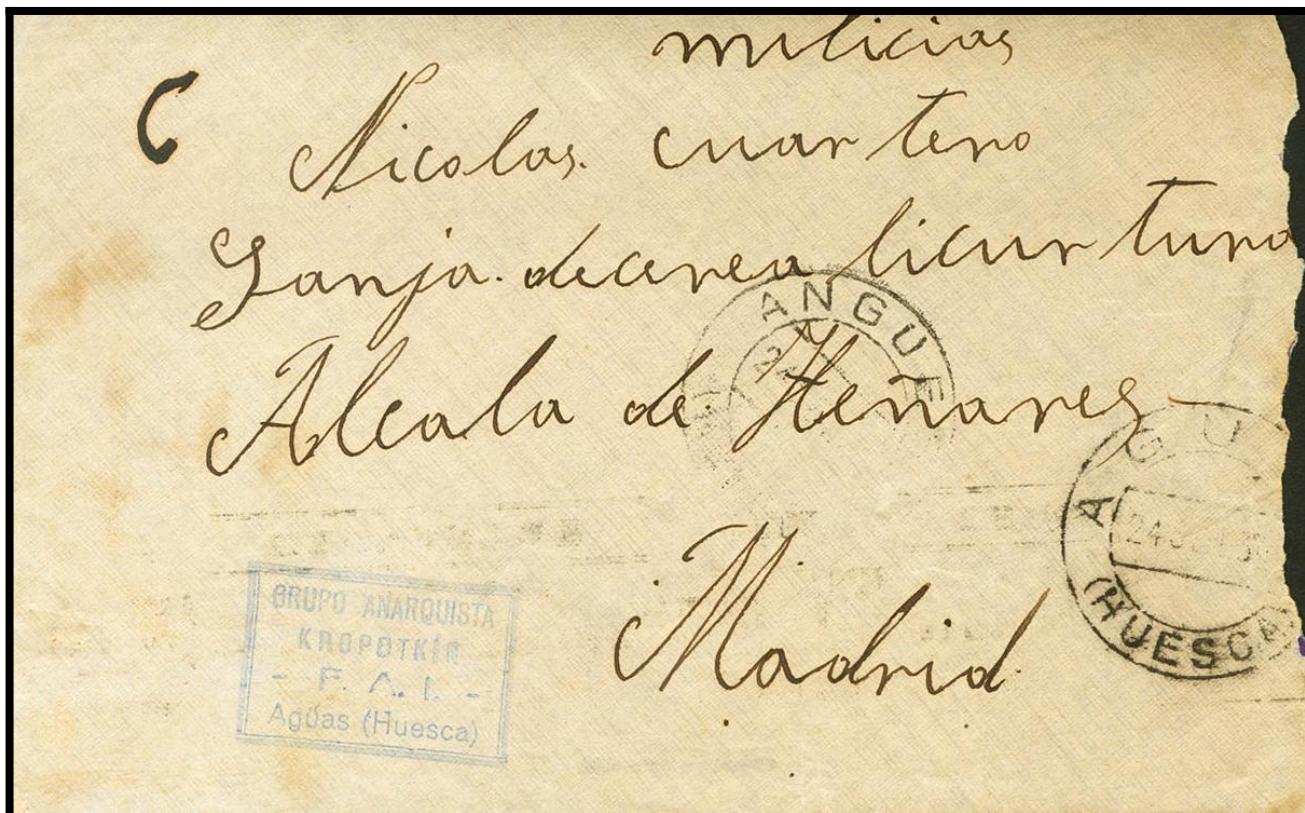 milicias
C
Nicolas. cuartero
Granja. de cerea licurtura
Alcala de Henares
Madrid.
ANGUE
24
AGU
24
(HUESCA)
GRUPO ANARQUISTA
KROPOTKIN
- F. A. I. -
Aguas (Huesca)